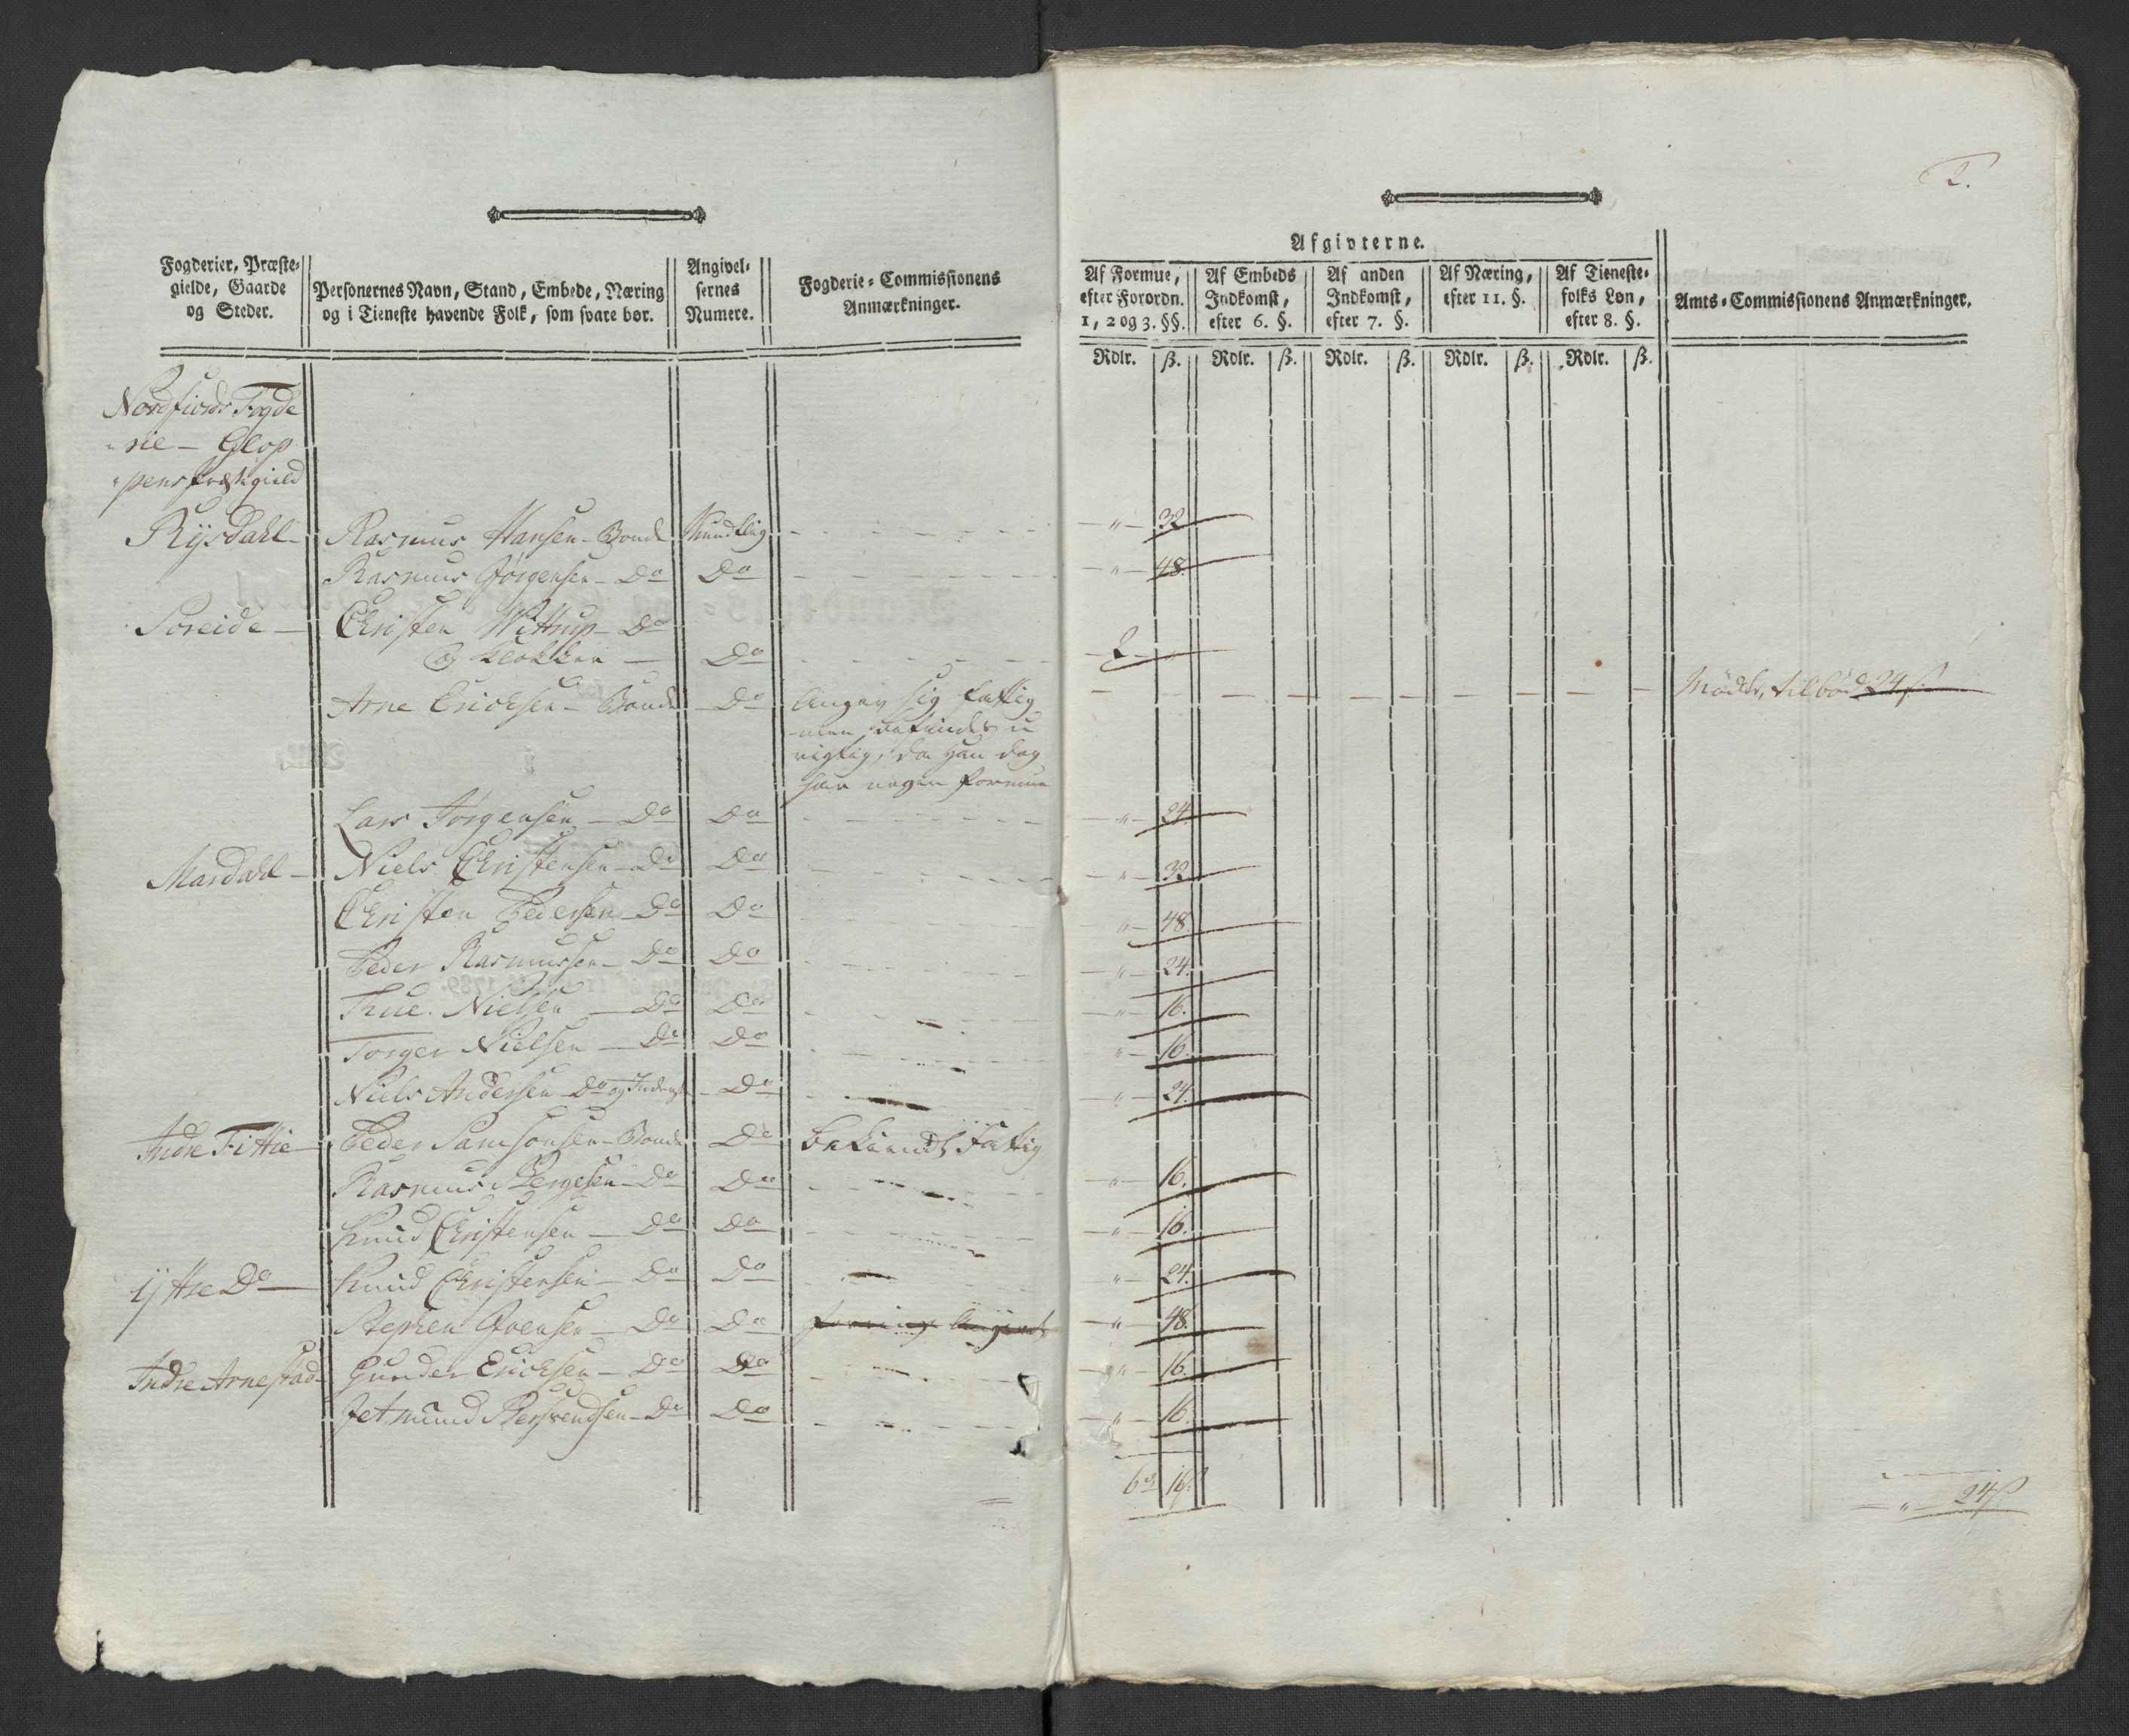 2.
Afgivterne.
Fogderier, Præste-
gielde, Gaarde
og Steder.
Personernes Navn, Stand, Embede, Næring
og i Tieneste havende Folk, som svare bør.
Angivel-
sernes
Numere.
Fogderie-Commissionens
Anmærkninger.
Af Formue,
efter Forordn.
1, 2 og 3. §§.
Af Embeds
Indkomst,
efter 6. §.
Af anden
Indkomst,
efter 7. §.
Af Næring,
efter 11. §.
Af Tieneste-
folks Løn,
efter 8. §.
Amts-Commissionens Anmærkninger.
Rdlr. ß. Rdlr. ß. Rdlr. ß. Rdlr. ß. Rdlr. ß.
Nordfiords Fogde
rie - Glop
pens Præstegield
Rysdahl - Rasmus Hansen - Bonde Mundtlig - " - 32
Rasmus Jørgensen - Do Do - " - 48.
Soreide - Christen Wittrup - Do
og Klokker - Do - 2 - "
Arne Erichsen - Bonde - Do Angav sig fattig
men befindes u
rigtig, da han dog
har nogen formue
Mødte, tilbød 24 ß.
Lars Jørgensen - Do Do - " - 24
Mardahl - Niels Christensen - Do Do - " - 32
Christen Pedersen - Do Do " - 48.
Peder Rasmussen - Do Do - " - 24.
Thue Nielsen - Do Do - " - 16.
Torger Nielsen - Do Do " - 16.
Niels Andersen - Do og - Do - " - 24.
Indre Fittie - Peder Samsonsen - Bonde Do bekiendt Fattig
Rasmus Bergesen - Do Do - " - 16.
Knud Christensen - Do Do - " - 16.
Yttre Do - Knud Christensen - Do Do " - 24.
Stephen - Do Do - " - 48.
Indre Arnestad - Gunder Erichsen - Do Do - " - 16.
Jetmund - Do Do - " - 16.
6 rd 16 ß
- " - 24 ß